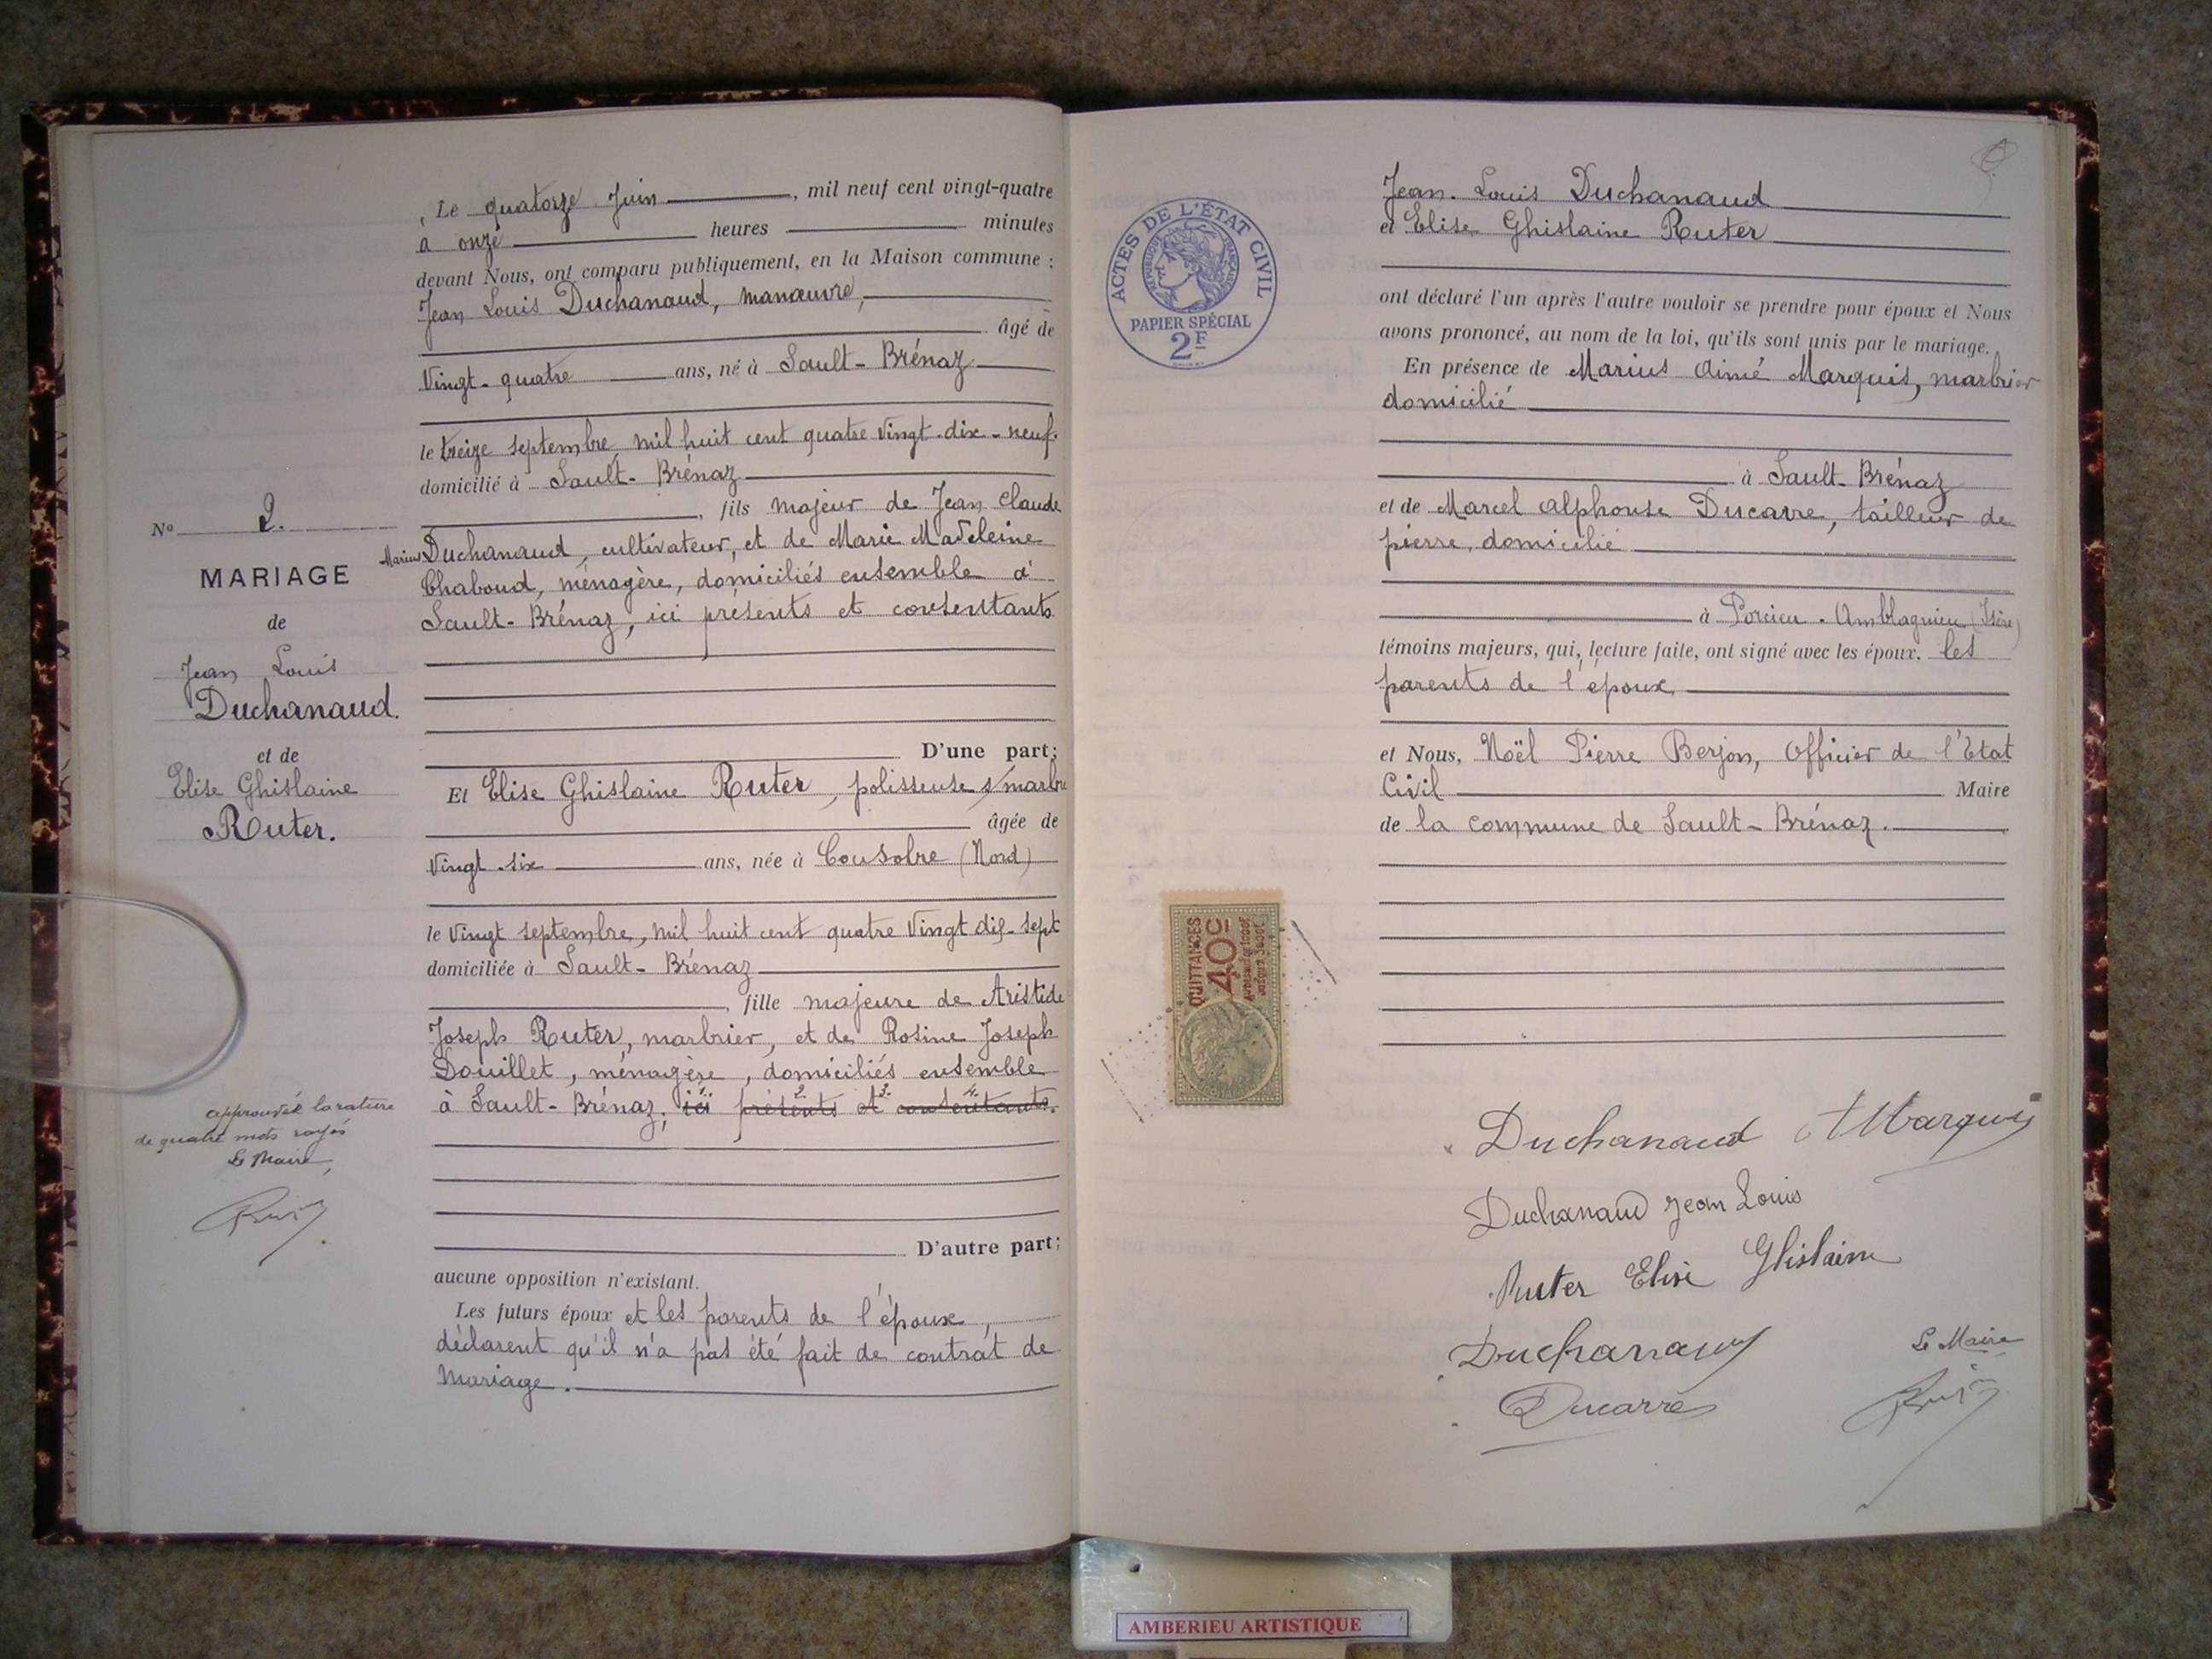 Le quatorze Juin, mil neuf cent vingt-quatre
à onze heures minutes
devant Nous, ont comparu publiquement, en la Maison commune :
Jean Louis Duchanaud, manœuvre,
âgé de
Vingt-quatre ans, né à Sault-Brénaz
le treize septembre mil huit cent quatre vingt-dix-neuf.
domicilié à Sault-Brénaz
, fils majeur de Jean Claude
Marius Duchanaud, cultivateur, et de Marie Madeleine
Chaboud, ménagère, domiciliés ensemble à
Sault-Brénaz, ici présents et consentants
D'une part;
Et Elise Ghislaine Ruter, polisseuse s/marbre
âgée de
Vingt-six ans, née à Cousolre (Nord)
le Vingt septembre, mil huit cent quatre Vingt dix-sept
domiciliée à Sault-Brénaz
, fille majeure de Aristide
Joseph Ruter, marbrier, et de Rosine Joseph
Douillet, ménagère, domiciliés ensemble
à Sault-Brénaz, ici présents et consentants.
1. 2. 3. 4.
D'autre part;
aucune opposition n'existant.
Les futurs époux et les parents de l'époux,
déclarent qu'il n'a pas été fait de contrat de
Mariage.
N° 2.
MARIAGE
de
Jean Louis
Duchanaud.
et de
Elise Ghislaine
Ruter.
approuvée la rature
de quatre mots rayés
Le Maire,
ACTES DE L'ÉTAT CIVIL
RÉPUBLIQUE FRANÇAISE
PAPIER SPÉCIAL
2F
QUITTANCES
40c
Jean-Louis Duchanaud
et Elise Ghislaine Ruter
ont déclaré l'un après l'autre vouloir se prendre pour époux et Nous
avons prononcé, au nom de la loi, qu'ils sont unis par le mariage.
En présence de Marius Aimé Marquis, marbrier
domicilié
à Sault-Brénaz
et de Marcel Alphonse Ducarre, tailleur de
pierre, domicilié
à Porcieu-Amblagnieu (Isère)
témoins majeurs, qui, lecture faite, ont signé avec les époux, les
parents de l'époux,
et Nous, Noël Pierre Berjon, Officier de l'Etat
Civil Maire
de la commune de Sault-Brénaz.
Duchanaud AMarquis
Duchanaud Jean Louis
Ruter Elise Ghislaine
Duchanaud
Le Maire
Ducarre
AMBERIEU ARTISTIQUE